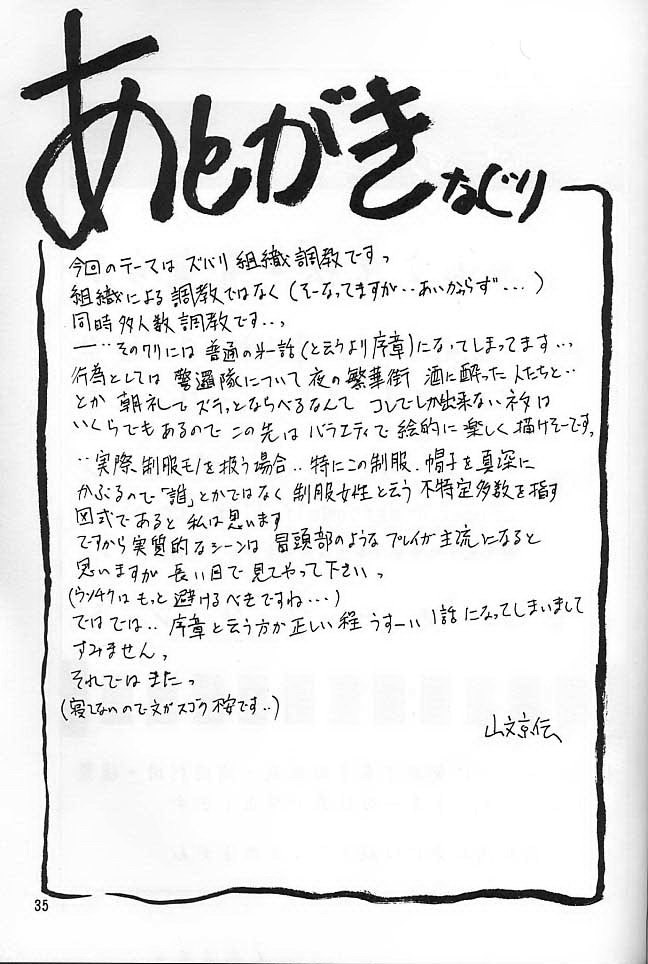 あとがきなぐり
今回のテーマは ズバリ 組織調教ですっ
組織による調教ではなく(そーなってますが‥あいかわらず…)
同時多人数調教です‥っ
一‥そのワリには 普通の第一話(と云うより序章)になってしまってます…、
行為としては 警邏隊について 夜の繁華街 酒に酔った人たちと‥
とか 朝礼で ズラッとならべるなんて コレでしか出来ないネタは
いくらでもあるので この先は バラエティで 絵的に 楽しく描けそーですっ
‥実際、制服モノを扱う場合‥特にこの制服、帽子を真深に
かぶるので「誰」とかではなく 制服女性と云う 不特定多数を指す
図式であると 私は思います
ですから実質的なシーンは 冒頭部のようなプレイが主流になると
思いますが 長い目で 見てやって下さいっ
(ウンチクは もっと 避けるべきですね…)
ではでは‥ 序章と云う方が正しい程 うすーい 1話になってしまいまして
すみません、
それでは またっ
(寝てないので 文がスゴク 変です‥)
山文京伝
35